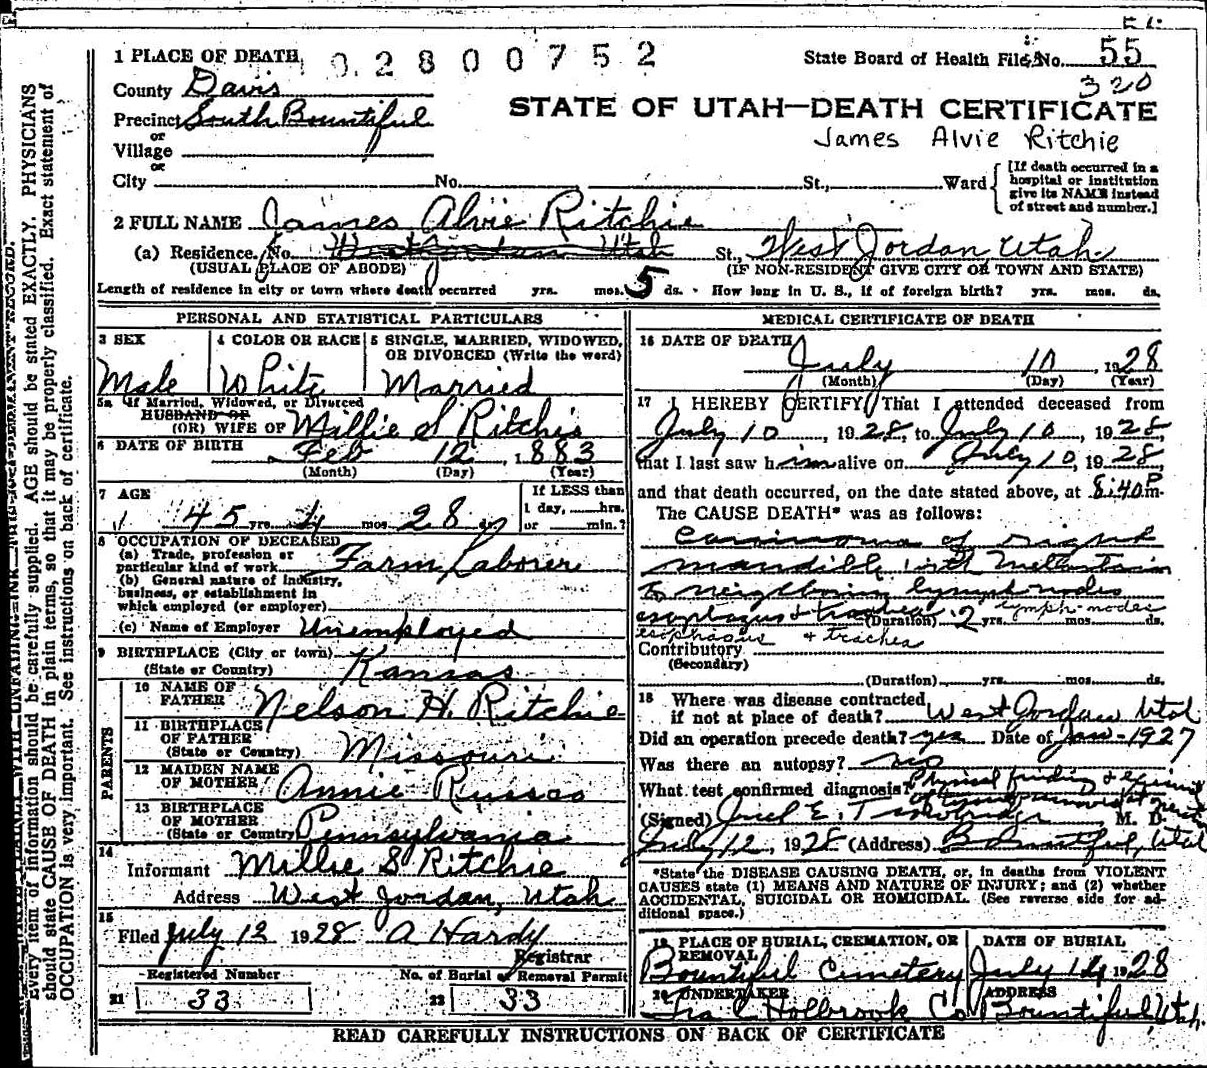 1 PLACE OF DEATH 02800752 State Board of Health File No. 55
320
County Davis
STATE OF UTAH—DEATH CERTIFICATE
Precinct South Bountiful
or
James Alvie Ritchie
Village
or
City No. St., Ward
[If death occurred in a
hospital or institution
give its NAME instead
of street and number.]
2 FULL NAME James Alvie Ritchie
(a) Residence. No. West Jordan Utah St., West Jordan, Utah.
(USUAL PLACE OF ABODE) (IF NON-RESIDENT GIVE CITY OR TOWN AND STATE)
Length of residence in city or town where death occurred yrs. mos. 5 ds. How long in U. S., if of foreign birth? yrs. mos. ds.
PERSONAL AND STATISTICAL PARTICULARS
3 SEX 4 COLOR OR RACE 5 SINGLE, MARRIED, WIDOWED,
OR DIVORCED (Write the word)
Male White Married
5a If Married, Widowed, or Divorced
HUSBAND OF
(OR) WIFE OF Millie S Ritchie
6 DATE OF BIRTH Feb 12, 1883
(Month) (Day) (Year)
7 AGE
If LESS than
1 day, hrs.
or min.?
45 yrs. 4 mos. 28 ds.
8 OCCUPATION OF DECEASED
(a) Trade, profession or
particular kind of work Farm Laborer
(b) General nature of industry,
business, or establishment in
which employed (or employer)
(c) Name of Employer Unemployed
9 BIRTHPLACE (City or town)
(State or Country) Kansas
PARENTS
10 NAME OF
FATHER Nelson H. Ritchie
11 BIRTHPLACE
OF FATHER
(State or Country) Missouri
12 MAIDEN NAME
OF MOTHER Annie Russco
13 BIRTHPLACE
OF MOTHER
(State or Country) Pennsylvania
14
Informant Millie S Ritchie
Address West Jordan, Utah
15
Filed July 12 1928 A Hardy
Registrar
Registered Number No. of Burial or Removal Permit
21 33 22 33
MEDICAL CERTIFICATE OF DEATH
16 DATE OF DEATH
July 10, 1928
(Month) (Day) (Year)
17 I HEREBY CERTIFY, That I attended deceased from
July 10, 1928, to July 10, 1928,
that I last saw him alive on July 10, 1928,
and that death occurred, on the date stated above, at 8:40 P m.
The CAUSE DEATH* was as follows:
Carcinoma of right
mandible with metastasis
to neighboring lymph nodes
esophagus & trachea (Duration) 2 yrs. mos. ds.
lymph-nodes
esophagus & trachea
Contributory
(Secondary)
(Duration) yrs. mos. ds.
18 Where was disease contracted
if not at place of death? West Jordan Utah
Did an operation precede death? yes Date of Jan-1927
Was there an autopsy? no
What test confirmed diagnosis? Physical finding &
(Signed) E. M. D.
July 12, 1928 (Address) Bountiful, Utah
*State the DISEASE CAUSING DEATH, or, in deaths from VIOLENT
CAUSES state (1) MEANS AND NATURE OF INJURY; and (2) whether
ACCIDENTAL, SUICIDAL OR HOMICIDAL. (See reverse side for ad-
ditional space.)
19 PLACE OF BURIAL, CREMATION, OR DATE OF BURIAL
REMOVAL
Bountiful Cemetery July 14 1928
20 UNDERTAKER ADDRESS
Ira C Holbrook Co Bountiful, Utah.
READ CAREFULLY INSTRUCTIONS ON BACK OF CERTIFICATE
Every item of information should be carefully supplied. AGE should be stated EXACTLY. PHYSICIANS
should state CAUSE OF DEATH in plain terms, so that it may be properly classified. Exact statement of
OCCUPATION is very important. See instructions on back of certificate.